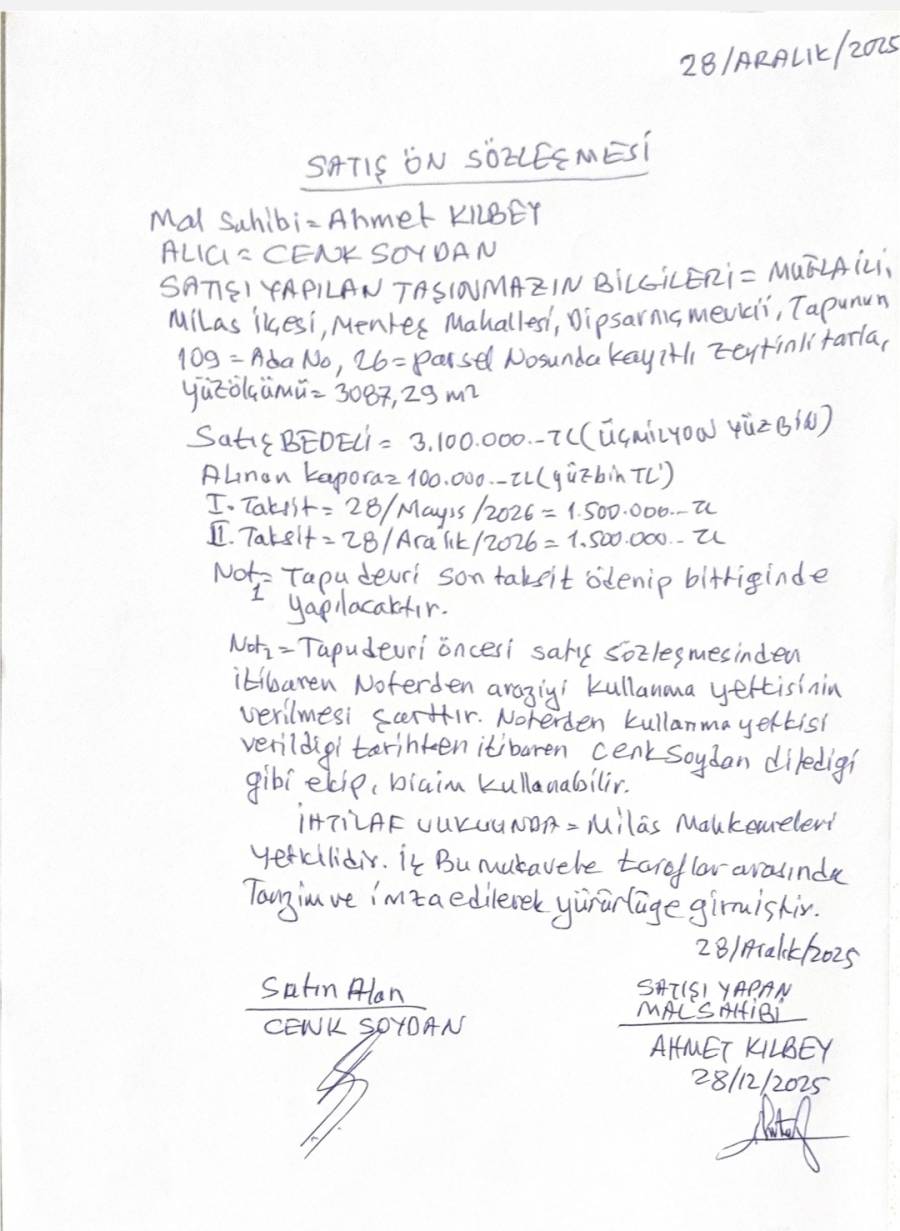 28/ARALIK/2025
SATIŞ ÖN SÖZLEŞMESİ
Mal Sahibi = Ahmet KILBEY
ALICI = CENK SOYDAN
SATIŞI YAPILAN TAŞINMAZIN BİLGİLERİ = MUĞLA İLİ,
Milas ilçesi, Menteş Mahallesi, Dipsarnıç mevkii, Tapunun
109 = Ada No, 26 = parsel Nosunda kayıtlı zeytinli tarla,
yüzölçümü = 3087,29 m²
Satış BEDELİ = 3.100.000.-TL (ÜÇMİLYON YÜZBİN)
Alınan kapora = 100.000.-TL (yüzbin TL)
I. Taksit = 28/Mayıs/2026 = 1.500.000.-TL
II. Taksit = 28/Aralık/2026 = 1.500.000.-TL
Not 1 = Tapu devri son taksit ödenip bittiginde
yapılacaktır.
Not 2 = Tapu devri öncesi satış sözleşmesinden
itibaren Noterden araziyi kullanma yetkisinin
verilmesi şarttır. Noterden kullanma yetkisi
verildigi tarihten itibaren Cenk Soydan diledigi
gibi ekip, biçim kullanabilir.
İHTİLAF VUKUUNDA = Milâs Mahkemeleri
Yetkilidir. İş Bu mukavele taraflar arasında
Tanzim ve imza edilerek yürürlüge girmiştir.
28/Aralık/2025
Satın Alan
CENK SOYDAN
SATIŞI YAPAN
MAL SAHİBİ
AHMET KILBEY
28/12/2025